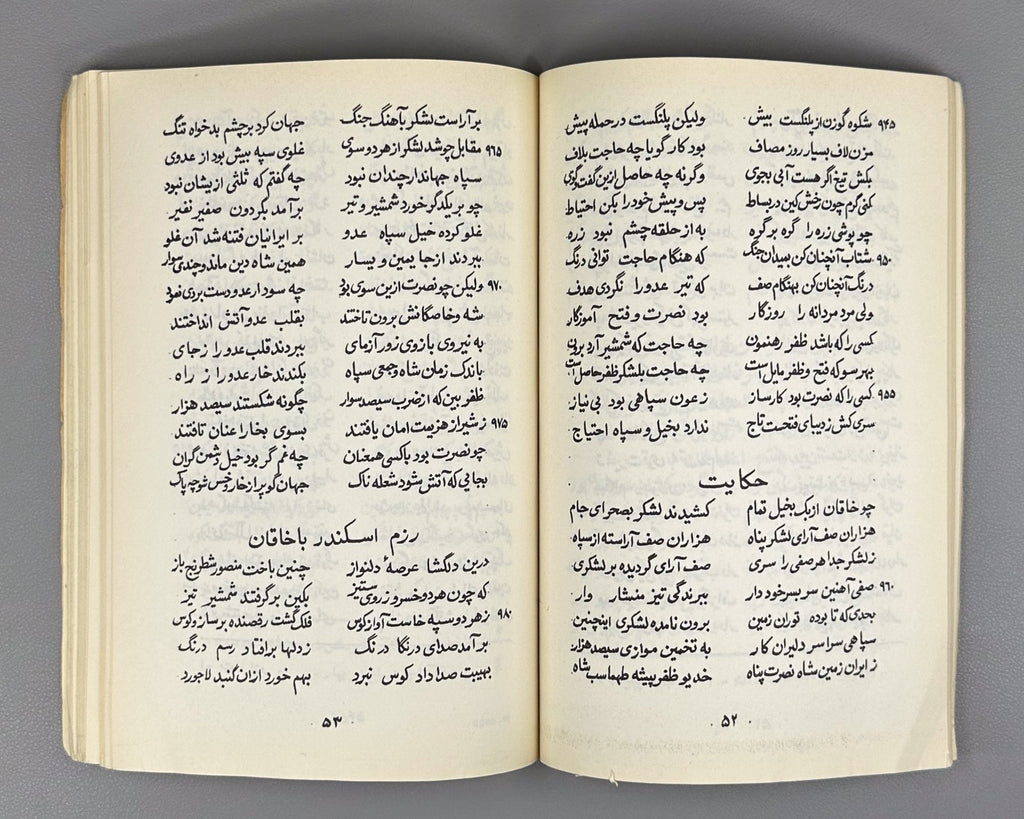 ۹۴۵ شکوه گوزن از پلنگست بیش ولیکن پلنگست در حمله پیش
مزن لاف بسیار روز مصاف بود کار گویا چه حاجت بلاف
بکش تیغ اگر هست آبی بجوی وگرنه چه حاصل ازین گفت گوی
کنی گرم چون رخش کین در بساط پس و پیش خود را بکن احتیاط
چو پوشی زره را گره بر گره به از حلقه چشم نبود زره
۹۵۰ شتاب آنچنان کن بمیدان جنگ که هنگام حاجت توانی درنگ
درنگ آنچنان کن بهنگام صف که تیر عدو را نگردی هدف
ولی مرد مردانه را روزگار بود نصرت و فتح آموزگار
کسی را که باشد ظفر رهنمون چه حاجت که شمشیر آرد برون
بهر سو که فتح و ظفر مایل است چه حاجت بلشکر ظفر حاصل است
۹۵۵ کسی را که نصرت بود کارساز زعون سپاهی بود بی نیاز
سری کش ز دیبای فتحست تاج ندارد بخیل و سپاه احتیاج
حکایت
چو خاقان ازبک بخیل تمام کشیدند لشکر بصحرای جام
هزاران صف آرای لشکر پناه هزاران صف آراسته از سپاه
ز لشکر جدا هر صفی را سری صف آرای گردیده بر لشکری
۹۶۰ صفی آهنین سر بسر خود دار ببرندگی تیز منشار وار
بحدی که تا بوده توران زمین برون نامده لشکری اینچنین
سپاهی سراسر دلیران کار به تخمین موازی سیصد هزار
ز ایران زمین شاه نصرت پناه خدیو ظفر پیشه طهماسب شاه
۵۲
بر آراست لشکر بآهنگ جنگ جهان کرد بر چشم بدخواه تنگ
۹۶۵ مقابل چو شد لشکر از هر دو سوی غلوی سپه بیش بود از عدوی
سپاه جهاندار چندان نبود چه گفتم که ثلثی ازیشان نبود
چو بر یکدگر خورد شمشیر و تیر برآمد بگردون صفیر نفیر
غلو کرده خیل سپاه عدو بر ایرانیان فتنه شد آن غلو
ببردند از جا یمین و یسار همین شاه دین ماند و چندی سوار
۹۷۰ ولیکن چو نصرت ازین سوی بود چه سود ار عدو دست بردی نمود
شه و خاصگانش برون تاختند بقلب عدو آتش انداختند
به نیروی بازوی زور آزمای ببردند قلب عدو را زجای
باندک زمان شاه و جمعی سپاه بکندند خار عدو را ز راه
ظفر بین که از ضرب سیصد سوار چگونه شکستند سیصد هزار
۹۷۵ ز شیراز هزیمت امان یافتند بسوی بخارا عنان تافتند
چو نصرت بود با کسی همعنان چه غم گر بود خیل دشمن گران
بجایی که آتش شود شعله ناک جهان گو پر از خار و خس شو چه باک
رزم اسکندر با خاقان
درین دلگشا عرصهٔ دلنواز چنین باخت منصور شطرنج باز
که چون هر دو خسرو ز روی ستیز بکین بر گرفتند شمشیر تیز
۹۸۰ ز هر دو سپه خاست آواز کوس فلک گشت رقصنده بر ساز و کوس
بر آمد صدای درنگا درنگ ز دلها بر افتاد رسم درنگ
بهیبت صدا داد کوس نبرد بهم خورد ازان گنبد لاجورد
۵۳